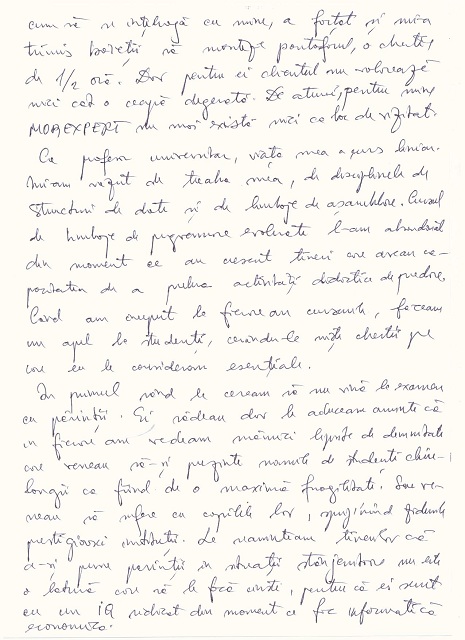 cum să se înțeleagă cu mine, a fortat și mi-a
trimis baieții să monteze pantoful, o chestie
de 1/2 oră. Dar pentru ei clientul nu valorează
nici cât o ceapă degerată. De atunci, pentru mine
MOBEXPERT nu mai există nici ca loc de vizitat.
Ca profesor universitar, viața mea a curs liniar.
Mi-am văzut de treaba mea, de disciplinele de
Structuri de date și de limbaje de asamblare. Cursul
de limbaje de programare evoluate l-am abandonat
din moment ce au crescut tineri care aveau ca-
pacitatea de a prelua activități didactice de predare.
Când am început la fiecare an cursurile, faceam
un apel la studenți, cerându-le niște chestii pe
care eu le consideram esențiale.
În primul rând le ceream să nu vină la examen
cu părinții. Ei râdeau dar le aduceam aminte că
în fiecare an vedeam mămici lipsite de demnitate
care veneau să-și prezinte numele de studenți
ca fiind de o maximă fragilitate. Sau ve-
neau să intre cu copiii lor, fiind
prestigioasei instituții. Le reaminteam tinerilor că
a-și pune părinții în situații stânjenitoare nu este
o latură care să le facă cinste, pentru că ei sunt
cu un IQ ridicat din moment ce fac informatică
economică.